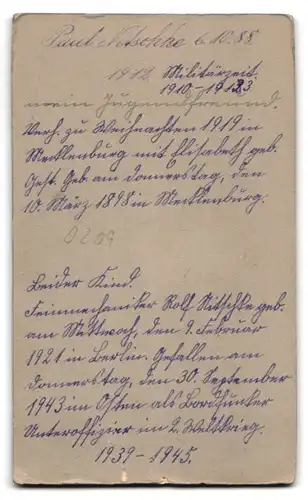 Paul Nitschke 6.10.88.
1912. Militärzeit.
1910-1913
mein Jugendfreund.
Verh. zu Weihnachten 1919 in
Mecklenburg mit Elisabeth geb.
Geb. am Donnerstag, den
10. März 1898 in Mecklenburg.
Beider Kind.
Feinmechaniker Rolf Nitschke geb.
am Mittwoch, den 9. Februar
1921 in Berlin. Gefallen am
Donnerstag, den 30. September
1943 im Osten als Bordfunker
Unteroffizier im 2. Weltkrieg.
1939-1945.